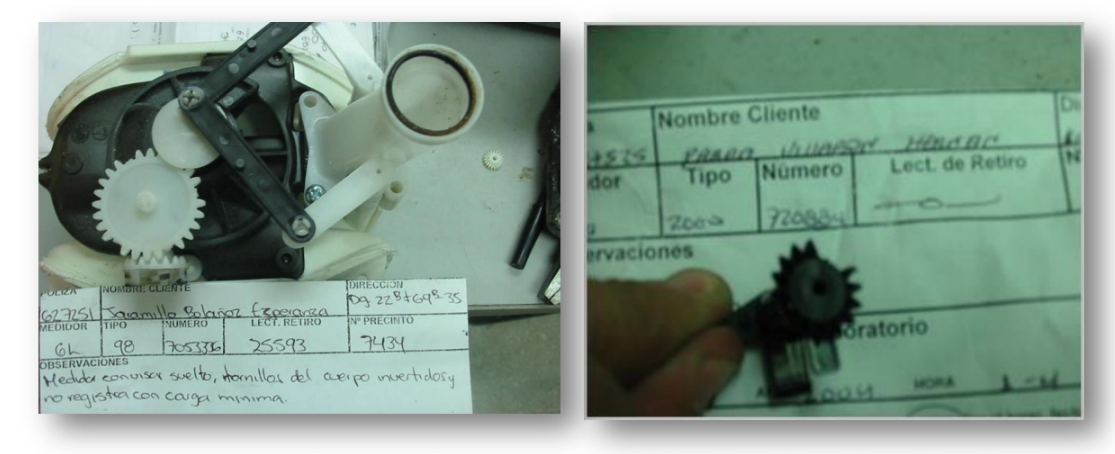 POLIZA NOMBRE CLIENTE DIRECCION
627251 Jaramillo Bolañoz Esperanza Dg 22B t 69B-35
MEDIDOR TIPO NUMERO LECT. RETIRO Nº PRECINTO
GL 98 7053336 25593 7434
OBSERVACIONES
Medidor con visor suelto, tornillos del cuerpo invertidos y
no registra con carga minima.
Nombre Cliente
Tipo Número Lect. de Retiro
2000 720884
ervaciones
oratorio
2004 HORA